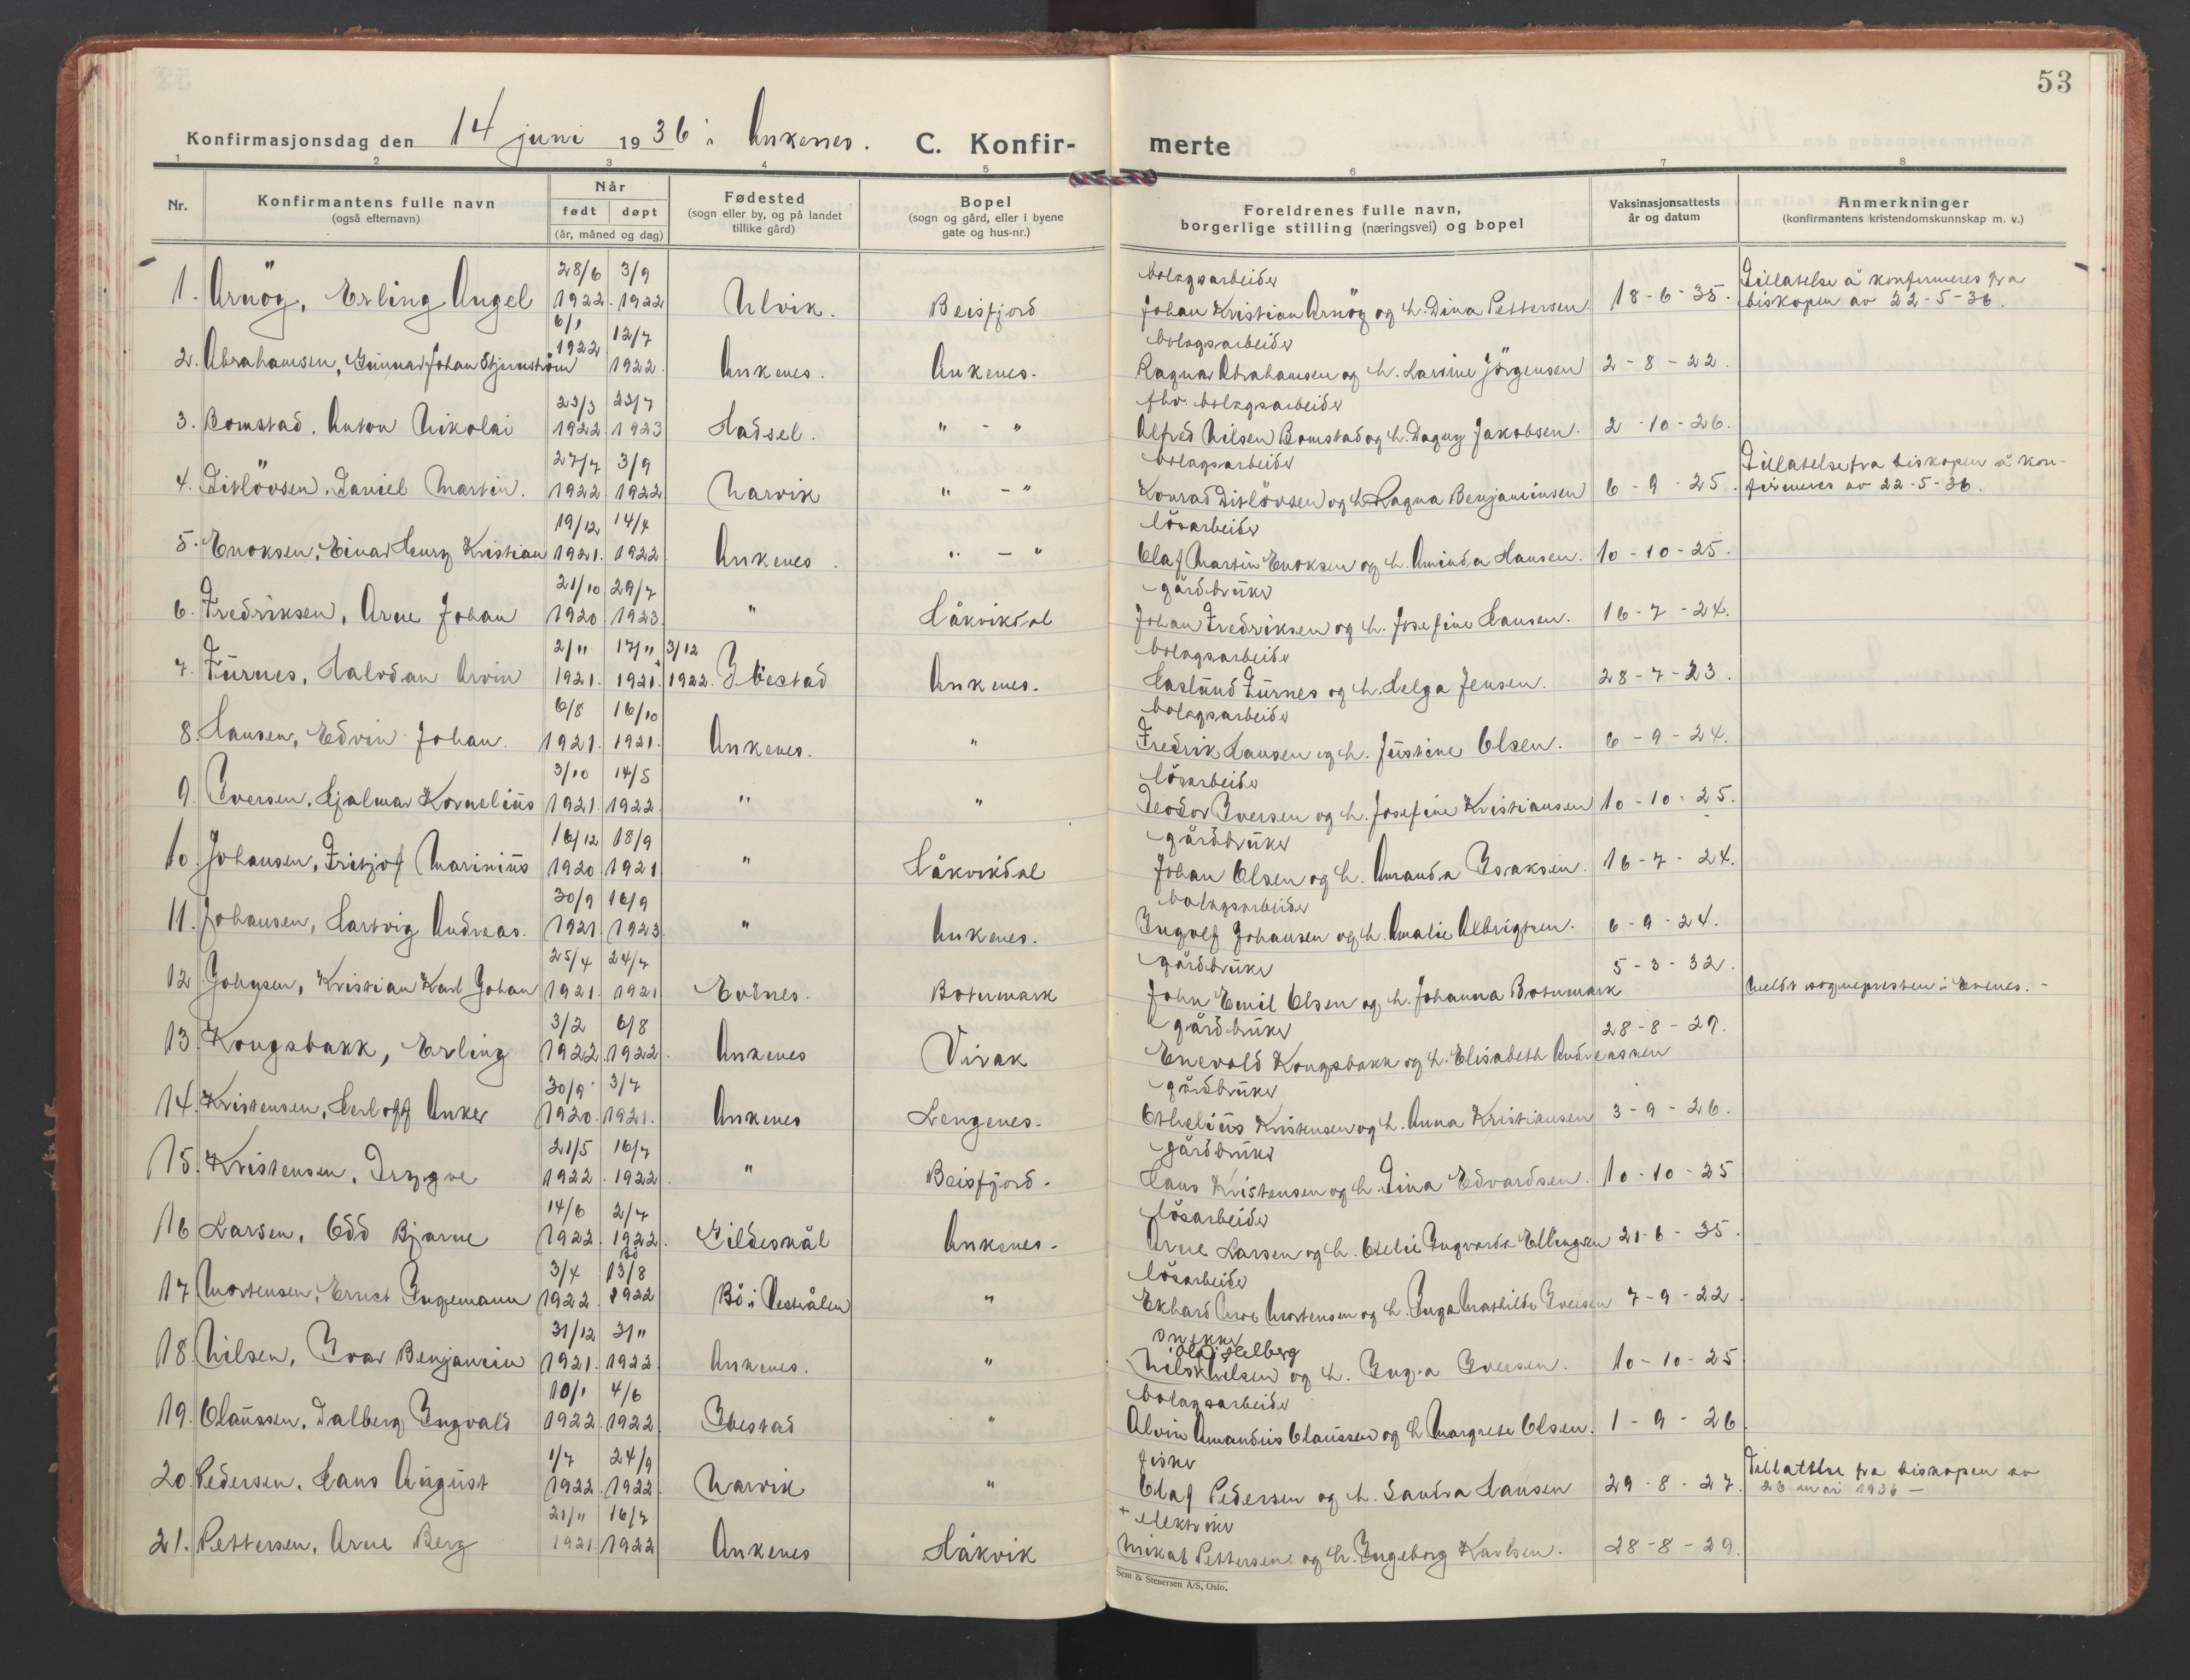 53
Konfirmasjonsdag den 14 juni 1936 i Ankenes. C. Konfir- merte
1 2 3 4 5 6 7 8
Nr. Konfirmantens fulle navn (også efternavn) Når født døpt (år, måned og dag) Fødested (sogn eller by, og på landet tillike gård) Bopel (sogn og gård, eller i byene gate og hus-nr.) Foreldrenes fulle navn, borgerlige stilling (næringsvei) og bopel Vaksinasjonsattests år og datum Anmerkninger (konfirmantens kristendomskunnskap m. v.)
28/6 3/9 bolagsarbeider Tillatelse å konfirmeres fra
1. Arnöy, Erling Angel 1922. 1922 Ulvik. Beisfjord Johan Kristian Arnöy og h. Dina Pettersen. 18-6-35. biskopen av 22-5-36.
6/1 12/7 bolagsarbeider
2. Abrahamsen, Gunnar Johan Stjernström 1922 1922. Ankenes. Ankenes. Ragnar Abrahamsen og h. Larsine Jörgensen 2-8-22.
23/3 23/7 fhv. bolagsarbeider
3. Bomstad, Anton Nikolai 1922 1923 Hadsel. " - " Alfred Nilsen Bomstad og h. Dagny Jakobsen. 2-10-26.
27/7 3/9 bolagsarbeider Tillatelse fra biskopen å kon-
4. Ditlövsen, Daniel Martin. 1922 1922 Narvik " - " Konrad Ditlövsen og h. Ragna Benjaminsen 6-9-25. firmeres av 22-5-36.
19/12 14/4 lösarbeider
5. Enoksen, Einar Henry Kristian 1921. 1922 Ankenes. " - " Olaf Martin Enoksen og h. Aminda Hansen. 10-10-25.
21/10 29/7 gårdbruker
6. Fredriksen, Arne Johan 1920 1923 " Håkvikdal Johan Fredriksen og h. Josefine Hansen. 16-7-24.
2/11 17/11 3/12 bolagsarbeider
7. Furnes, Halvdan Arvin 1921. 1921. 1922. Ibestad Ankenes. Haslund Furnes og h. Helga Jensen. 28-7-23.
6/8 16/10 bolagsarbeider
8. Hansen, Edvin Johan. 1921. 1921. Ankenes. " Fredrik Hansen og h. Justine Olsen. 6-9-24.
3/10 14/5 lösarbeider
9. Iversen, Hjalmar Kornelius 1921. 1922. " " Teodor Iversen og h. Josefine Kristiansen 10-10-25.
16/12 18/9 gårdbruker
10. Johansen, Fritjof Marinius 1920. 1921 " Håkvikdal Johan Olsen og h. Amanda Isaksen. 16-7-24.
30/9 16/9 bolagsarbeider
11. Johansen, Hartvig Andreas. 1921. 1923. " Ankenes. Ingolf Johansen og h. Amalie Albrigtsen. 6-9-24.
25/4 24/7 gårdbruker 5-3-32.
12. Johnsen, Kristian Karl Johan 1921. 1921 Evenes. Botnmark John Emil Olsen og h. Johanna Botnmark Meldt sognepresten i Evenes. -
3/2 6/8 gårdbruker 28-8-29.
13. Kongsbakk, Erling 1922. 1922. Ankenes Virak Enevold Kongsbakk og h. Elisabeth Andreassen
30/9 3/7 gårdbruker
14. Kristensen, Herloff Anker 1920. 1921. Ankenes Lengenes. Othelius Kristensen og h. Anna Kristiansen 3-9-26.
21/5 16/7 gårdbruker
15. Kristensen, Trygve 1922. 1922. " Beisfjord. Hans Kristensen og h. Dina Edvardsen. 10-10-25
14/6 2/7 lösarbeider
16 Larsen, Odd Bjarne 1922. 1922. Gildeskål Ankenes. Arne Larsen og h. Otelie Ingvarda Ellingsen 21-6-35.
Bö
3/4 13/8 lösarbeider
17 Mortensen, Ernst Ingemann 1922. 1922 Bö i Vesterålen " Ekhard Moe Mortensen og h. Inga Mathilde Iversen 7-9-22.
31/12 3/11 snekker
18. Nilsen, Ivar Benjamin 1921. 1922. Ankenes. " Nils Nilsen og h. Inga Iversen. 10-10-25
10/1 4/6 bolagsarbeider
19. Claussen, Dalberg Ingvald 1922. 1922. Ibestad " Alvin Amandus Claussen og h. Margrete Olsen. 1-9-26.
1/7 24/9 fisker Tillatelse fra biskopen av
20. Pedersen, Hans August 1922. 1922. Narvik " Olaf Pedersen og h. Sandra Hansen 29-8-27. 26 mai 1936 -
21/11 16/7 + elektriker
21. Pettersen, Arne Berg 1921. 1922 Ankenes Håkvik Mikal Pettersen og h. Ingeborg Karlsen. 28-8-29.
Sem & Stenersen A/S, Oslo.